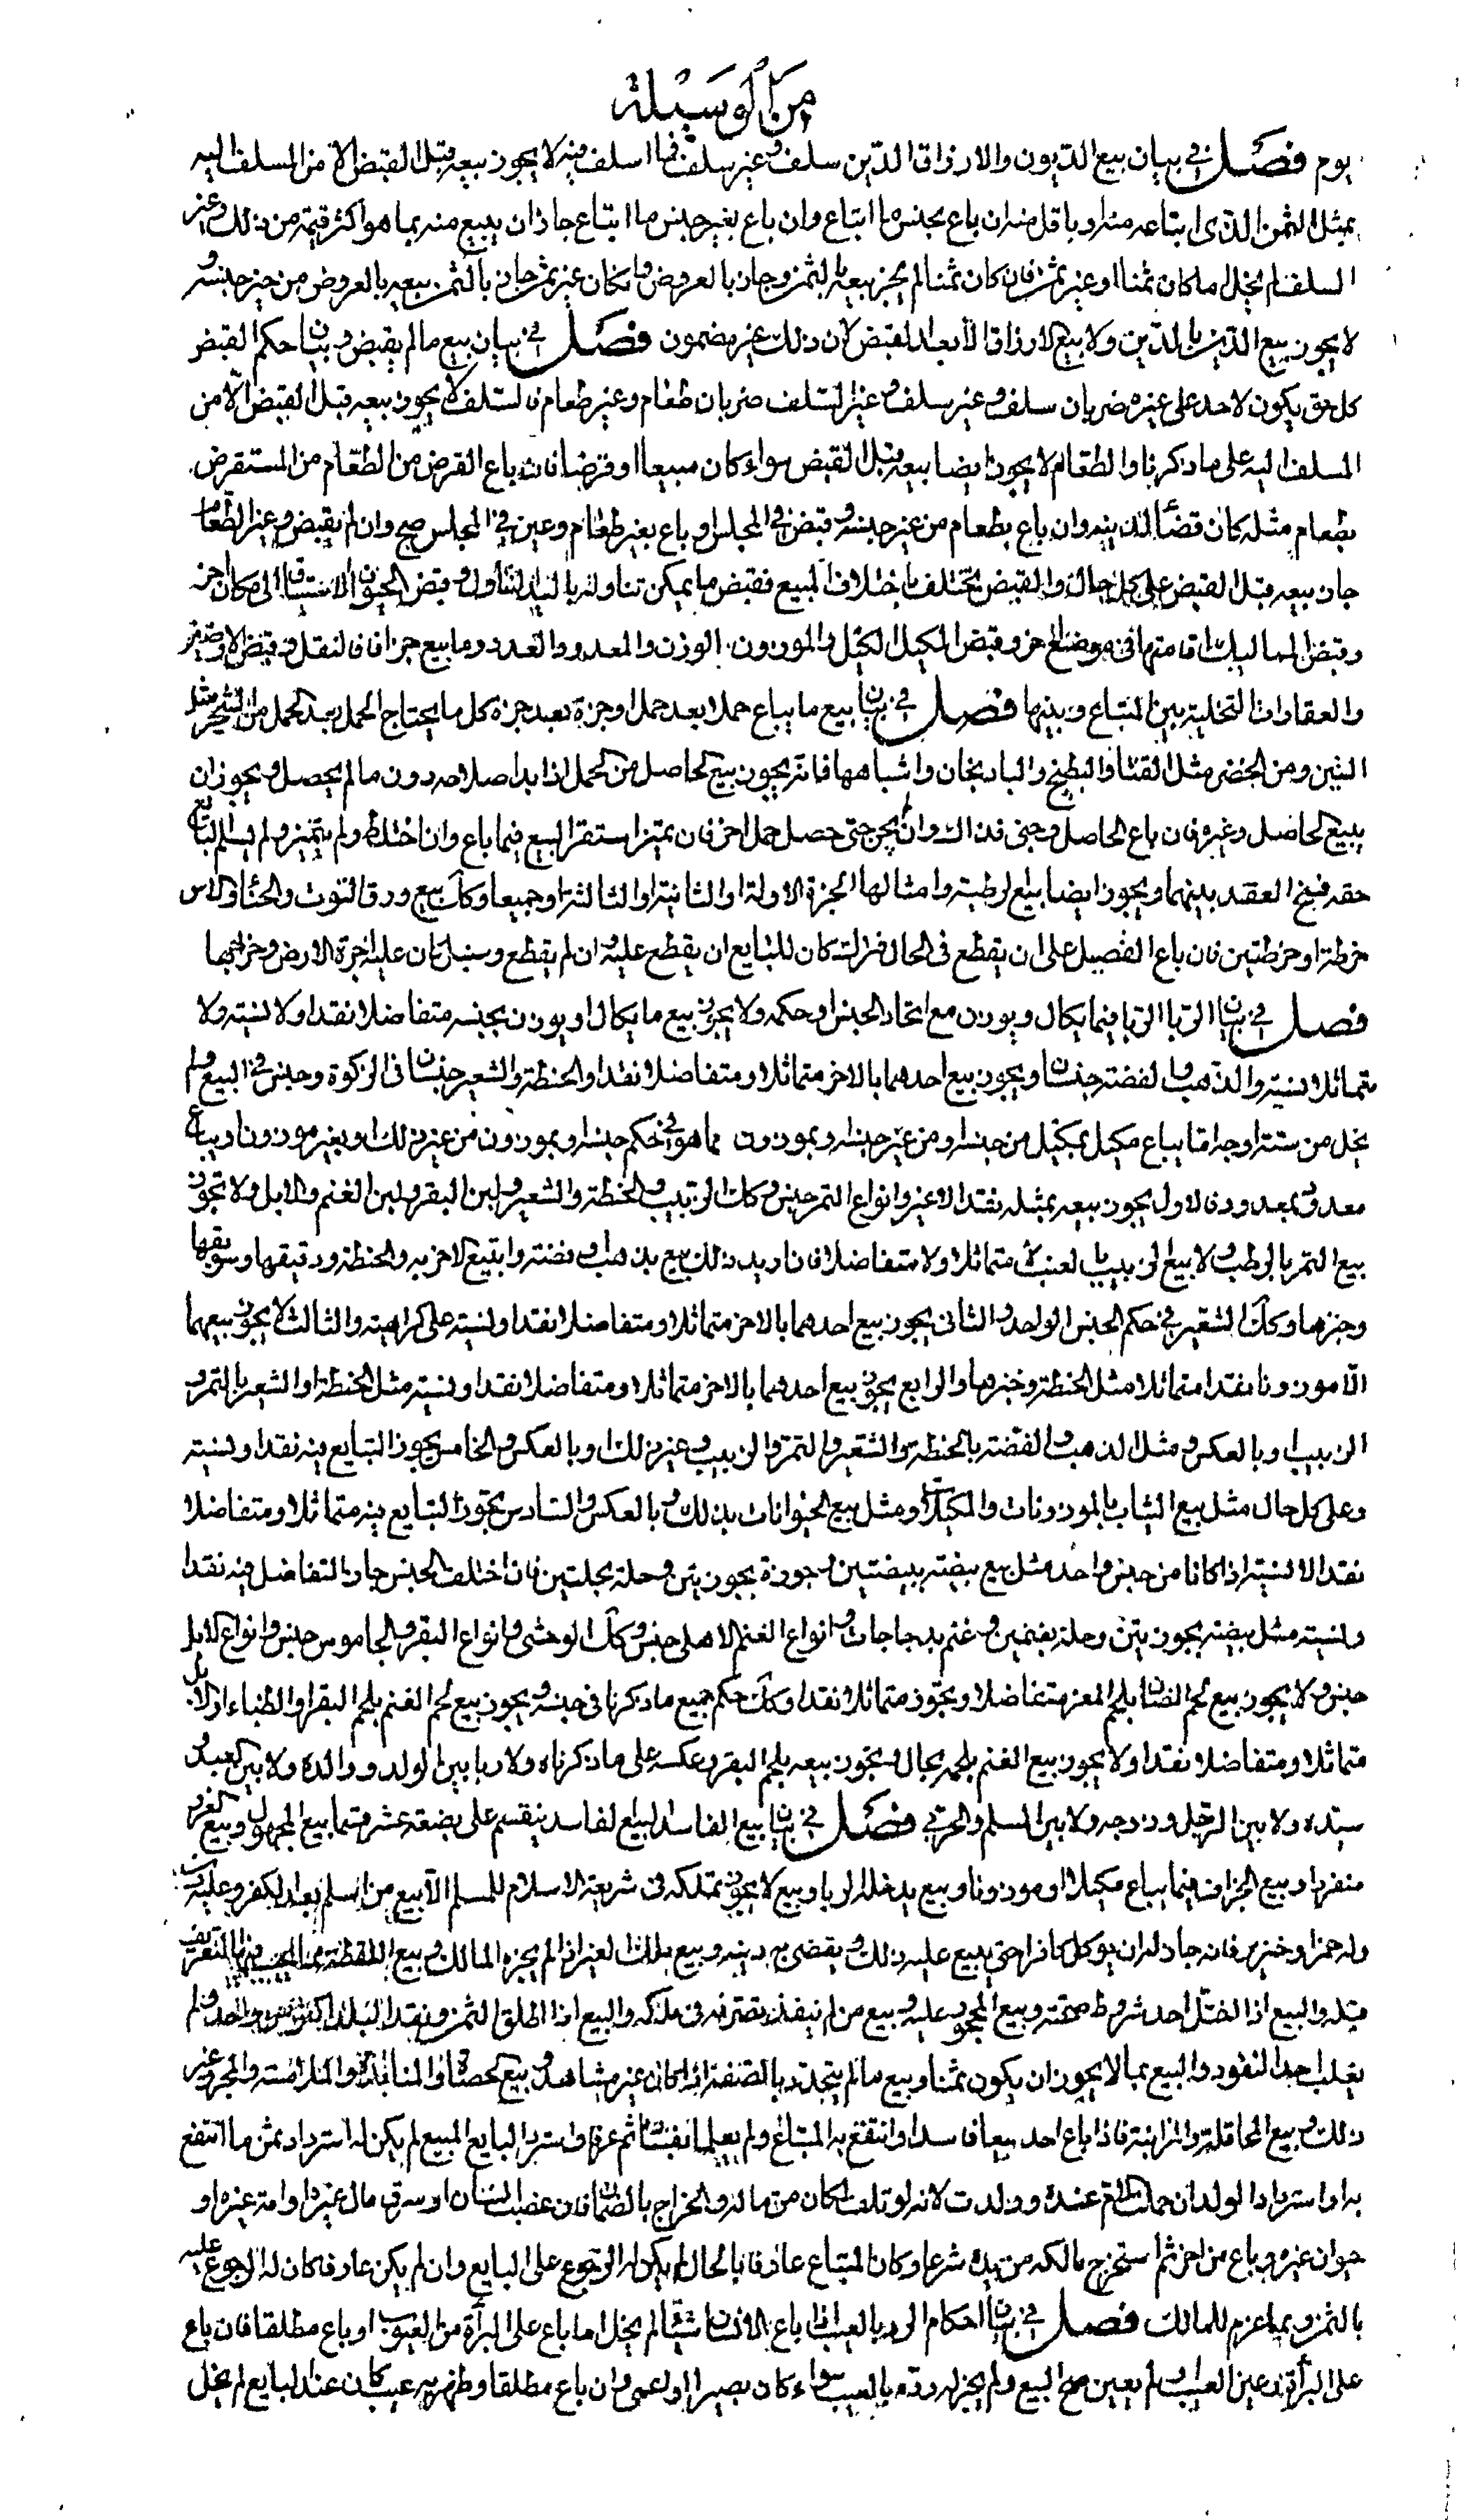 من الوسيلة
يوم فصل في بيان بيع الديون والارزاق الدين سلف وغير سلف فما اسلف فيه لا يجوز بيعه قبل القبض الا من المسلف اليه
بمثل الثمن الذي ابتاعه منه او باقل منه ان باع بجنس ما ابتاع وان باع بغير جنس ما ابتاع جاز ان يبيع منه بما هو اكثر قيمة من ذلك وغير
السلف لم يخل اما كان ثمنا او غير ثمن فان كان ثمنا لم يجز بيعه بالثمن وجاز بالعروض وان كان غير ثمن جاز بالثمن بيعه بالعروض من غير جنسه و
لا يجوز بيع الدين بالدين ولا بيع الارزاق الا بعد القبض لان ذلك غير مضمون فصل في بيان بيع ما لم يقبض وبيان حكم القبض
كل حق يكون لاحد على غيره ضربان سلف وغير سلف وغير السلف ضربان طعام وغير طعام فالسلف لا يجوز بيعه قبل القبض الا من
المسلف اليه على ما ذكرنا والطعام لا يجوز ايضا بيعه قبل القبض سواء كان مبيعا او قرضا فان باع القرض من الطعام من المستقرض
بطعام مثله كان قضاء لدينه وان باع بطعام من غير جنسه وقبض في المجلس او باع بغير طعام وعين في المجلس صح وان لم يقبض وغير الطعام
جاز بيعه قبل القبض على كل حال والقبض يختلف باختلاف المبيع فقبض ما يمكن تناوله باليد التناول وقبض الحيوان الاستياق الى مكان اخر
وقبض المماليك اقامتها في موضع اخر وقبض المكيل الكيل والموزون الوزن والمعدود العدد وما بيع جزافا فالنقل وقبض الارضين
والعقارات التخلية بين المبتاع وبينها فصل في بيان بيع ما يباع حملا بعد حمل او جزة بعد جزة كل ما يحتاج الحمل بعد الحمل من الشجر مثل
التين ومن الخضر مثل القثاء والبطيخ والباذنجان واشباهها فانه يجوز بيع الحاصل من الحمل اذا بدا صلاحه دون ما لم يحصل ويجوز ان
يبيع الحاصل وغيره فان باع الحاصل وجنى فذاك وان لم يجن حتى حصل حمل اخر فان تميز استقر البيع فيما باع وان اختلط ولم يتميز ولم يسلم البايع
حقه فسخ العقد بينهما ويجوز ايضا بيع الرطبة وامثالها الجزة الاولة او الثانية او الثالثة او جميعا وكذلك بيع ورق التوت والحناء والاس
خرطة او خرطتين فان باع الفصيل على ان يقطع في الحال فترك كان للبايع ان يقطع عليه وان لم يقطع وسنبل كان عليه اجرة الارض وخراجها
فصل في بيان الربا الربا فيما يكال ويوزن مع اتحاد الجنس او حكمه ولا يجوز بيع ما يكال او يوزن بجنسه متفاضلا نقدا ولا نسية ولا
متماثلا نسية والذهب والفضة جنسان ويجوز بيع احدهما بالاخر متماثلا ومتفاضلا نقدا والحنطة والشعير جنسان في الزكوة وجنس في البيع ولم
يخل من ستة اوجه اما يباع مكيل بمكيل من جنسه او من غير جنسه او بموزون مما هو في حكم جنسه او بموزون من غير ذلك او بغير موزون او يباع
معدود بمعدود فالاول يجوز بيعه بمثله نقدا لا غير وانواع التمر جنس وكذلك الزبيب والحنطة والشعير ولبن البقر ولبن الغنم والابل ولا يجوز
بيع التمر بالرطب ولا بيع الزبيب بالعنب لا متماثلا ولا متفاضلا فان اريد ذلك بيع بذهب وفضة وابتيع الاخر به والحنطة ودقيقها وسويقها
وخبزها وكذلك الشعير في حكم الجنس الواحد والثاني يجوز بيع احدهما بالاخر متماثلا ومتفاضلا نقدا ونسية على كراهية والثالث لا يجوز بيعهما
الا موزونا نقدا متماثلا مثل الحنطة وخبزها والرابع يجوز بيع احدهما بالاخر متماثلا ومتفاضلا نقدا ونسية مثل الحنطة او الشعير بالتمر و
الزبيب او بالعكس ومثل الذهب والفضة بالحنطة والشعير والتمر والزبيب وغير ذلك او بالعكس والخامس يجوز التبايع فيه نقدا ونسية
وعلى كل حال مثل بيع الثياب بالموزونات والمكيلات ومثل بيع الحيوانات بذلك وبالعكس والسادس يجوز التبايع فيه متماثلا ومتفاضلا
نقدا لا نسية اذا كانا من جنس واحد مثل بيع بيضة ببيضتين وجوزة بجوزتين وحلة بحلتين فان اختلف الجنس جاز التفاضل فيه نقدا
ونسية مثل بيضة بجوزتين وحلة بغنمين وغنم بدجاجات وانواع الغنم الاهلي جنس وكذلك الوحشي وانواع البقر والجاموس جنس وانواع الابل
جنس ولا يجوز بيع لحم الضان بلحم المعز متفاضلا ويجوز متماثلا نقدا وكذلك حكم جميع ما ذكرنا في جنسه ويجوز بيع لحم الغنم بلحم البقر او الظباء او الابل
متماثلا ومتفاضلا نقدا ولا يجوز بيع الغنم بلحمه بحال ويجوز بيعه بلحم البقر وعكسه على ما ذكرناه ولا ربا بين الولد ووالده ولا بين العبد و
سيده ولا بين الرجل وزوجه ولا بين المسلم والحربي فصل في بيان بيع الفاسد البيع الفاسد ينقسم على بضعة عشر قسما بيع المجهول وبيع الغرر
منفردا وبيع الجزاف فيما يباع مكيلا او موزونا وبيع يدخله الربا وبيع لا يجوز تملكه في شريعة الاسلام للمسلم الا بيع من اسلم بعد الكفر وعليه دين
وله خمر او خنزير فانه جاز له ان يوكل كافرا حتى يبيع عليه ذلك ويقضي به دينه وبيع ملك الغير اذا لم يجزه المالك وبيع اللقطة التعريف
قبله والبيع اذا اختل احد شروط صحته وبيع المحجور عليه وبيع من لم ينفذ تصرفه في ملكه والبيع اذا اطلق الثمن ونقد البلد اكثر من واحد ولم
يغلب احد النقود والبيع بما لا يجوز ان يكون ثمنا وبيع ما لم يتحدد بالصفة اذا كان غير مشاهد وبيع الحصاة والمنابذة والملامسة والمجر وغير
ذلك وبيع المحاقلة والمزابنة فاذا باع احد بيعا فاسدا وانتفع به المبتاع ولم يعلما بفساده ثم عرفا واسترد البايع المبيع لم يكن له استرداد ثمن ما انتفع
به او استرداد الولد ان حملت الام عنده وولدت لانه لو تلف لكان من ماله والخراج بالضمان فان غصب انسان او سرق مال غيره او امة غيره او
حيوان غيره وباع من اخر ثم استخرج مالكه من يده شرعا وكان المبتاع عارفا بالحال لم يكن له الرجوع على البايع وان لم يكن عارفا كان له الرجوع عليه
بالثمن وبما غرم للمالك فصل في بيان احكام الرد بالعيب اذا باع الانسان شيئا لم يخل اما باع على البرأة من العيوب او باع مطلقا فان باع
على البرأة وعين العيب او لم يعين صح البيع ولم يجز له رده بالعيب سواء كان بصيرا او اعمى وان باع مطلقا وظهر به عيب كان عند البايع لم يخل